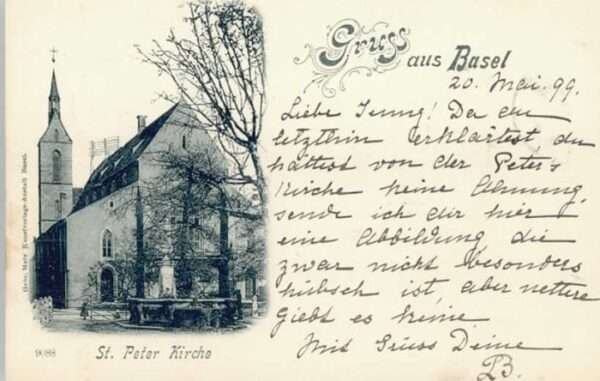 Gruss aus Basel
20. Mai. 99.
Liebe Jenny! Da du
letzthin erklärtest du
hättist von der Peters-
Kirche keine Ahnung,
sende ich dir hier
eine Abbildung die
zwar nicht besonders
hübsch ist, aber nettere
giebt es keine
Mit Gruss Deine
Gebr. Metz Kunstverlags-Anstalt Basel.
9088
St. Peter Kirche